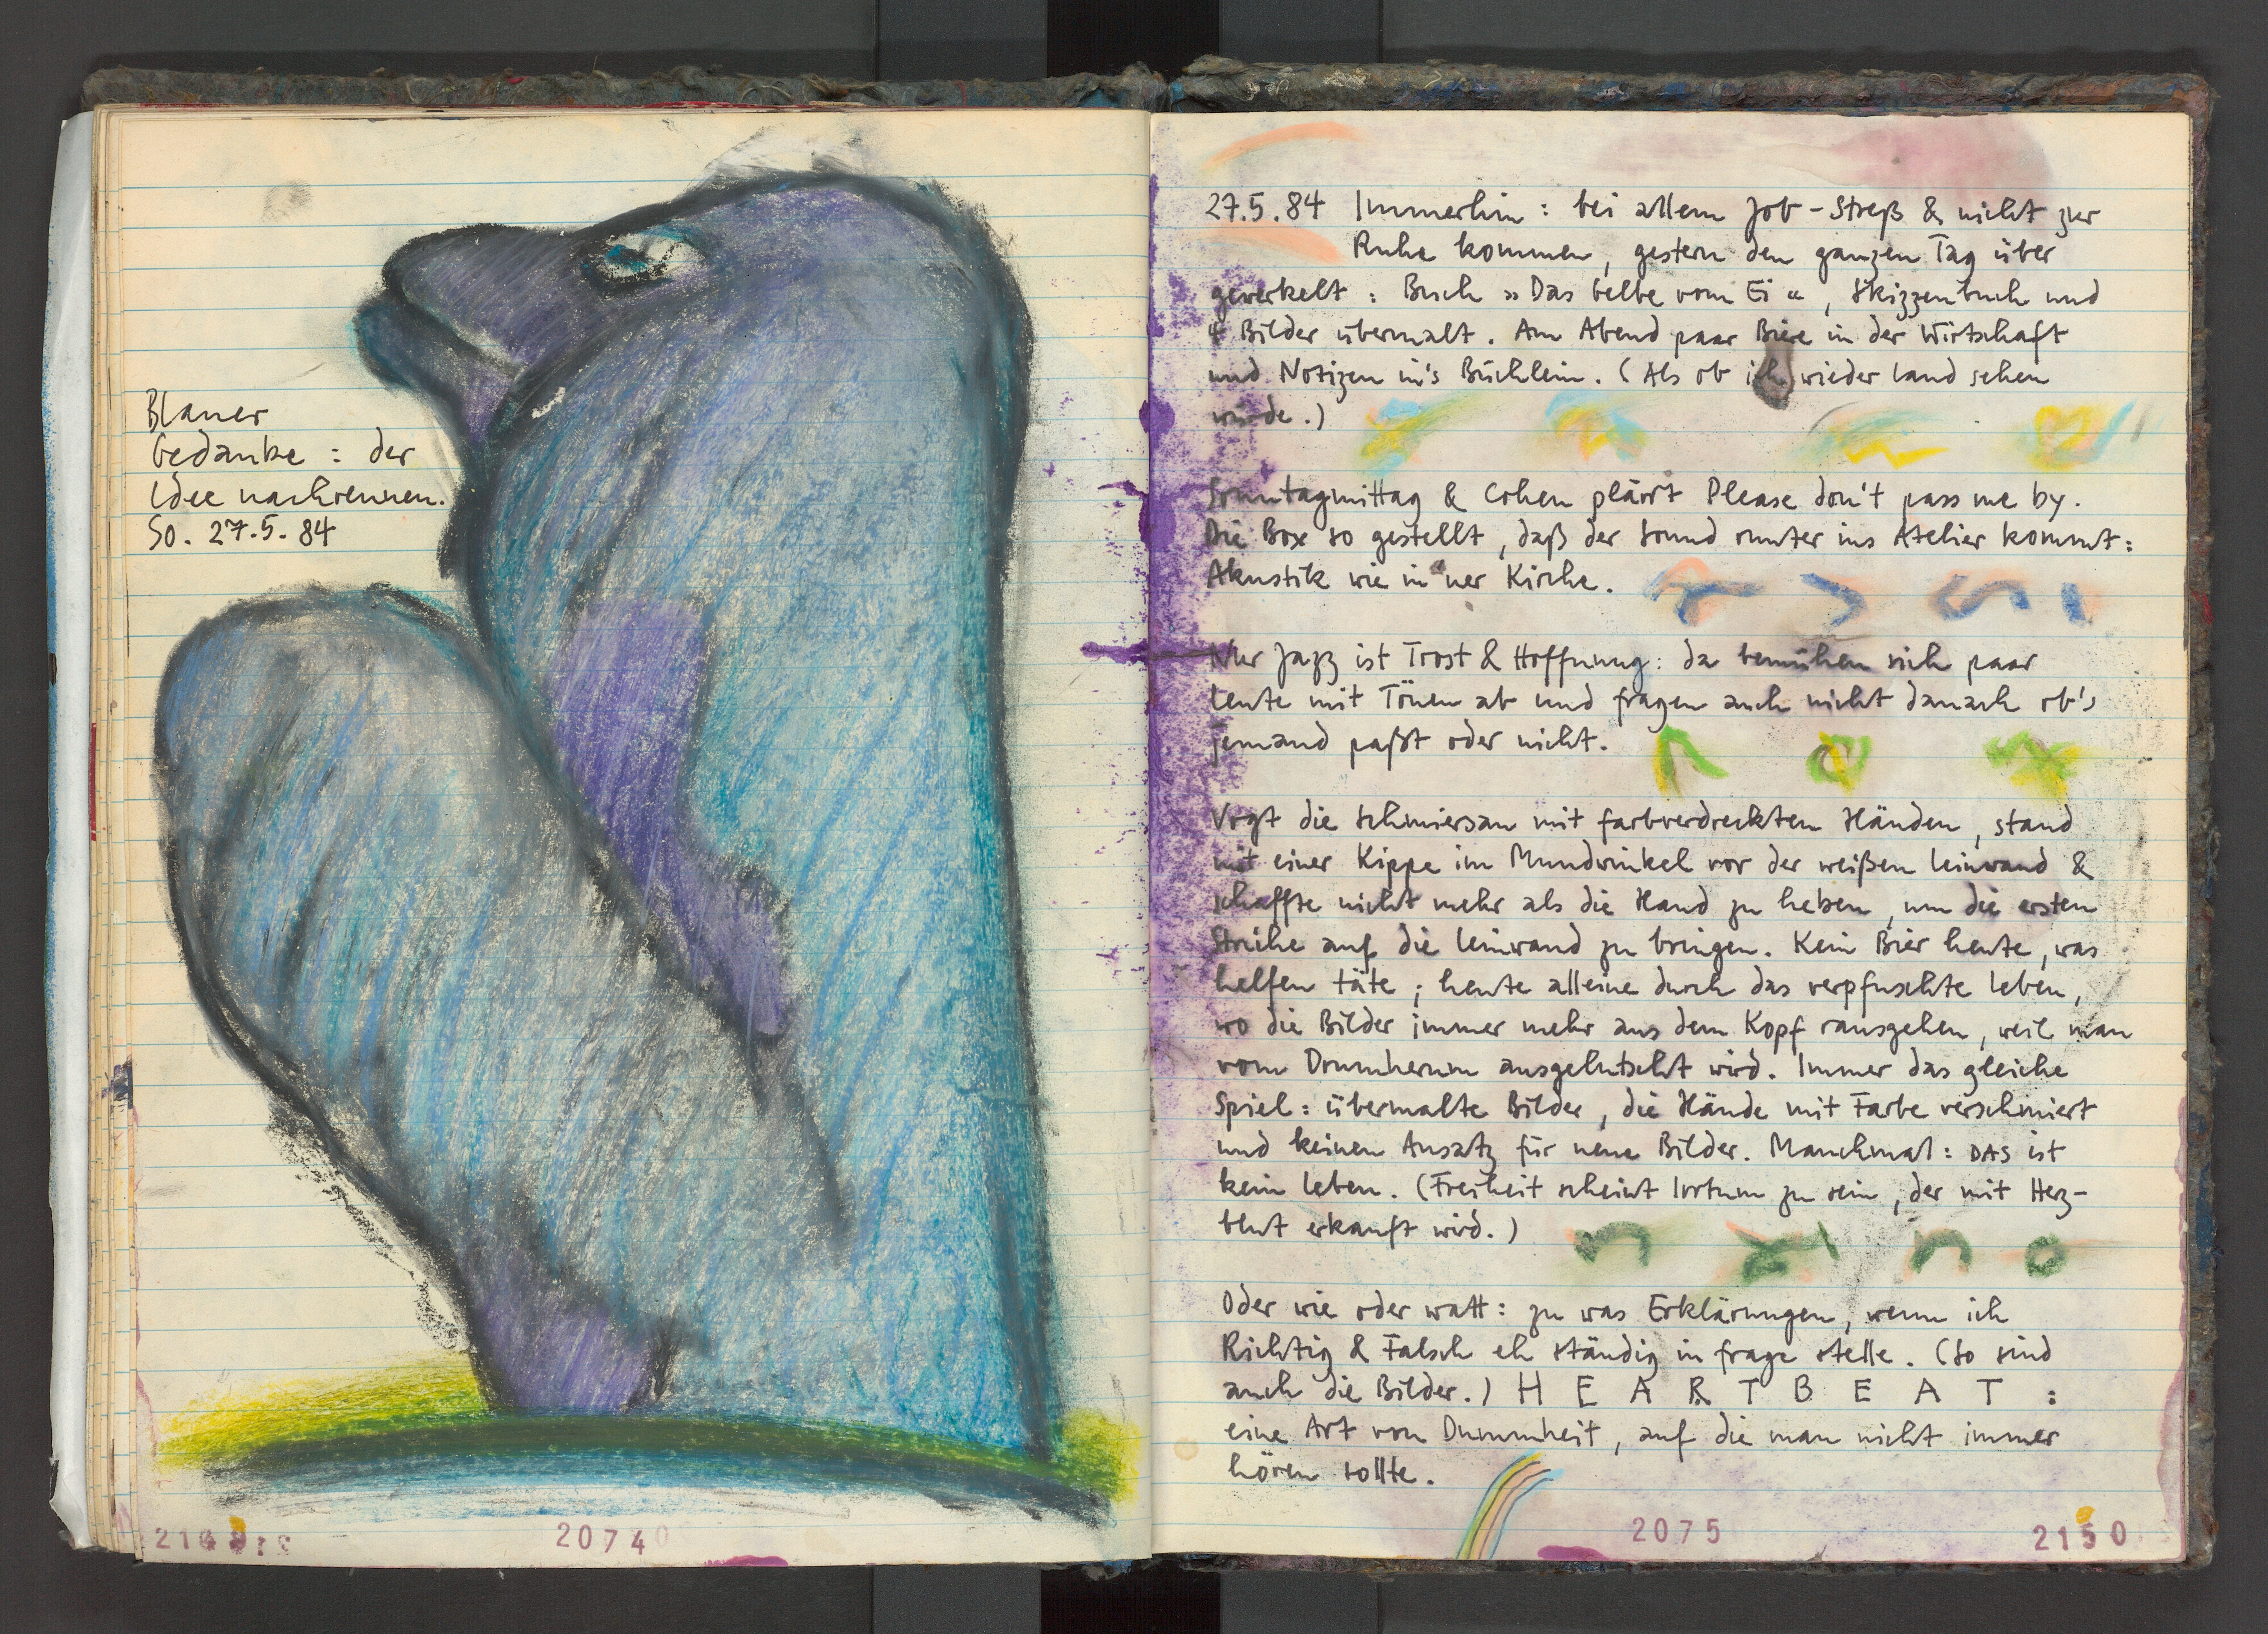 Blauer
Gedanke : der
Idee nachrennen.
So. 27.5.84
20740
27.5.84 Immerhin : bei allem Job-Streß & nicht zur
Ruhe kommen, gestern den ganzen Tag über
gewerkelt : Buch »Das Gelbe vom Ei«, Skizzenbuch und
4 Bilder übermalt. Am Abend paar Biere in der Wirtschaft
und Notizen in's Büchlein. (Als ob ich wieder Land sehen
würde.)
Sonntagmittag & Cohen plärrt Please don't pass me by.
Die Box so gestellt, daß der Sound runter ins Atelier kommt:
Akustik wie in 'ner Kirche.
Nur Jazz ist Trost & Hoffnung: da bemühen sich paar
Leute mit Tönen ab und fragen auch nicht danach ob's
jemand paßt oder nicht.
Vogt die Schmiersau mit farbverdreckten Händen, stand
mit einer Kippe im Mundwinkel vor der weißen Leinwand &
schaffte nicht mehr als die Hand zu heben, um die ersten
Striche auf die Leinwand zu bringen. Kein Bier heute, was
helfen täte; heute alleine durch das verpfuschte Leben,
wo die Bilder immer mehr aus dem Kopf rausgehen, weil man
vom Drumherum ausgelutscht wird. Immer das gleiche
Spiel: übermalte Bilder, die Hände mit Farbe verschmiert
und keinen Ansatz für neue Bilder. Manchmal: DAS ist
kein Leben. (Freiheit scheint Irrtum zu sein, der mit Herz-
blut erkauft wird.)
Oder wie oder watt: zu was Erklärungen, wenn ich
Richtig & Falsch eh ständig in frage stelle. (So sind
auch die Bilder.) H E A R T B E A T :
eine Art von Dummheit, auf die man nicht immer
hören sollte.
2075
2150